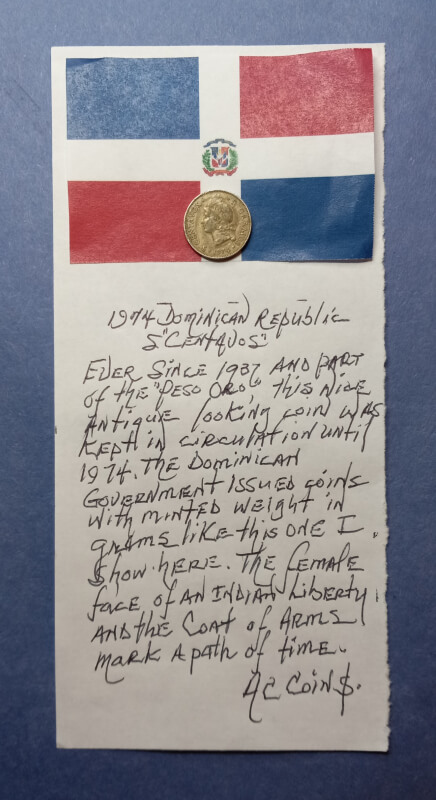 1974 Dominican Republic
5 "Centavos"
Ever since 1937 and part
of the "Peso Oro", this nice
antique looking coin was
kept in circulation until
1974. The Dominican
Government issued coins
with minted weight in
grams like this one I
show here. The female
face of an Indian Liberty
and the Coat of Arms
mark a path of time.
AC Coin$.